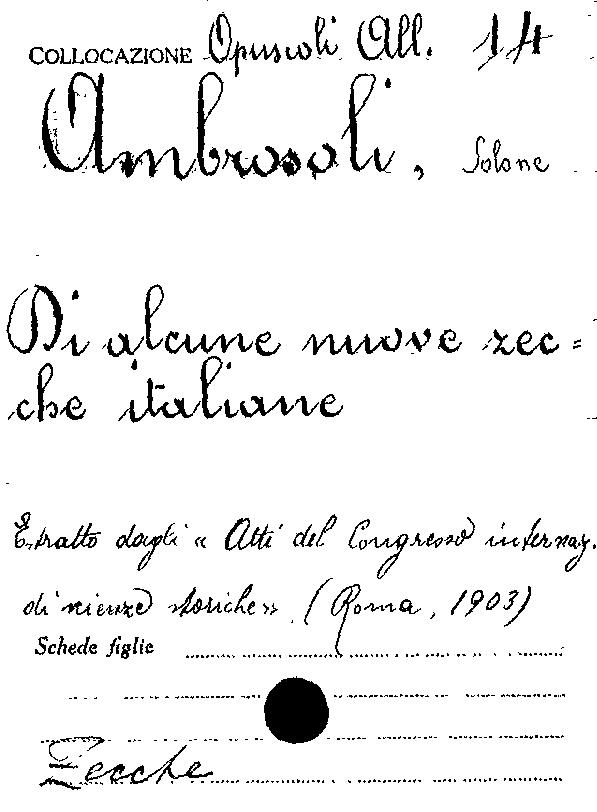 COLLOCAZIONE Opuscoli All. 14
Ambrosoli, Solone
Di alcune nuove zec=
che italiane
Estratto dagli « Atti del Congresso internaz.
di scienze storiche». (Roma, 1903)
Schede figlie
Zecche